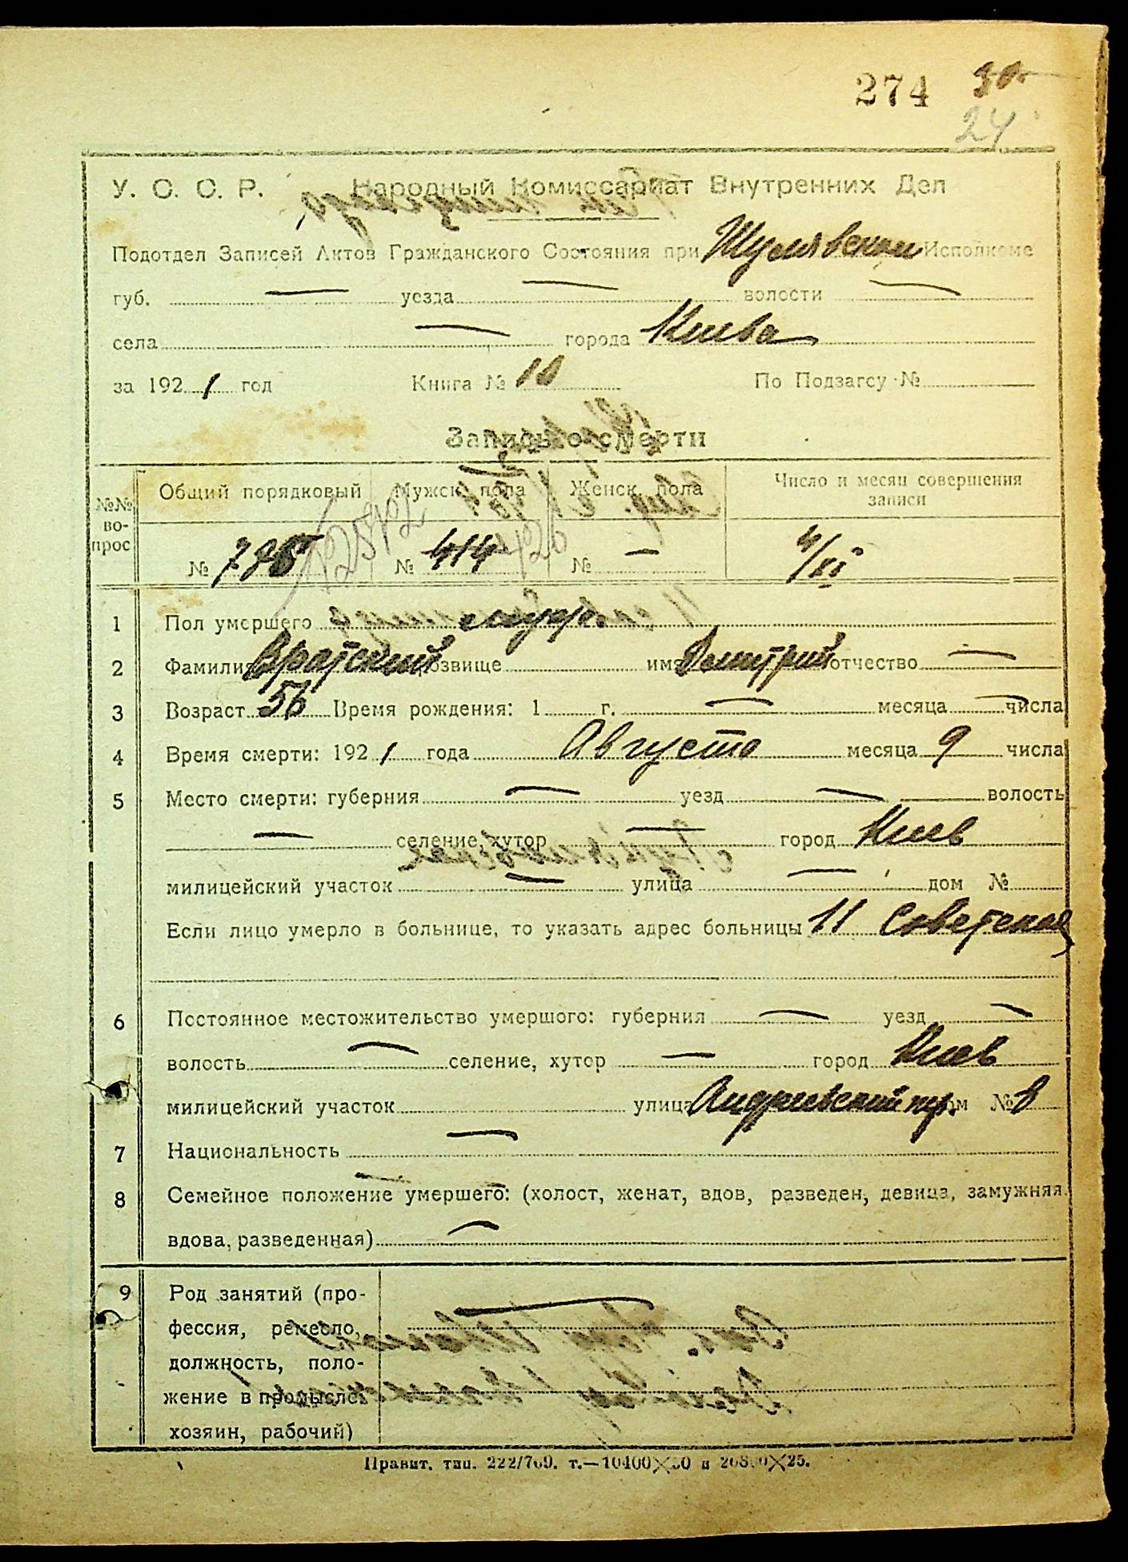 274 30
24
У. С. С. Р. Народный Комиссариат Внутренних Дел
Подотдел Записей Актов Гражданского Состояния при Шулявском Исполкоме
губ. — уезда — волости —
села — города Киева
за 1921 год Книга № 10 По Подзагсу №
Запись о смерти
№№ во-прос
Общий порядковый Мужск. пола Женск. пола Число и месяц совершения записи
№ 785 № 414 № —
1 Пол умершего муж.
2 Фамилия прозвище имя Дмитрий отчество —
3 Возраст 56 Время рождения: 1 г. — месяца — числа
4 Время смерти: 1921 года Августа месяца 9 числа
5 Место смерти: губерния — уезд — волость
— селение, хутор — город Киев
милицейский участок — улица — дом №
Если лицо умерло в больнице, то указать адрес больницы 11 Советская
6 Постоянное местожительство умершого: губерния — уезд —
волость — селение, хутор — город Киев
милицейский участок улица Андреевский дом № 8
7 Национальность —
8 Семейное положение умершего: (холост, женат, вдов, разведен, девица, замужняя
вдова, разведенная) —
9 Род занятий (про-
фессия, ремесло,
должность, поло-
жение в промысле:
хозяин, рабочий)
Правит. тип. 222/709. т.—10400